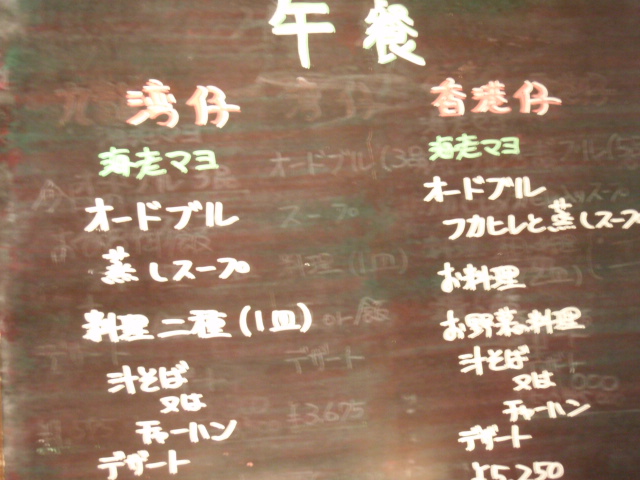 午餐
湾仔
海老マヨ
オードブル
蒸しスープ
料理二種(1皿)
汁そば
又は
チャーハン
デザート
香港仔
海老マヨ
オードブル
フカヒレと蒸しスープ
お料理
お野菜料理
汁そば
又は
チャーハン
デザート
¥5,250
オードブル(3
スープ
料理(1皿)
or 飯
デザート
¥3,675